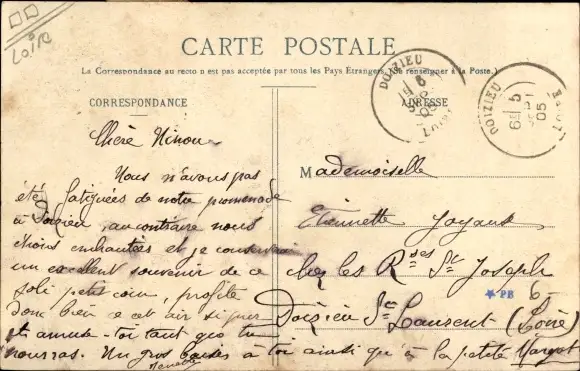 Loire
CARTE POSTALE
La Correspondance au recto n'est pas acceptée par tous les Pays Étrangers. (Se renseigner à la Poste.)
CORRESPONDANCE
ADRESSE
DOIZIEU
DOIZIEU
05
Chère Ninon
Nous n'avons pas
été fatiguées de notre promenade
à Doizieu, au contraire nous
étions enchantées et je conserverai
un excellent souvenir de ce
joli petit coin, profite
donc bien de cet air si pur
et amuse-toi tant que tu
pourras. Un gros baiser à toi ainsi qu'à la petite Margot
Mademoiselle
Etiennette
chez les Rses St Joseph
Doizieu St Laurent (Loire)
PB
6-